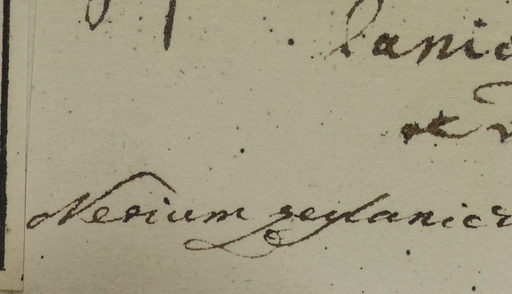 lanic
et
Nerium zeylanic